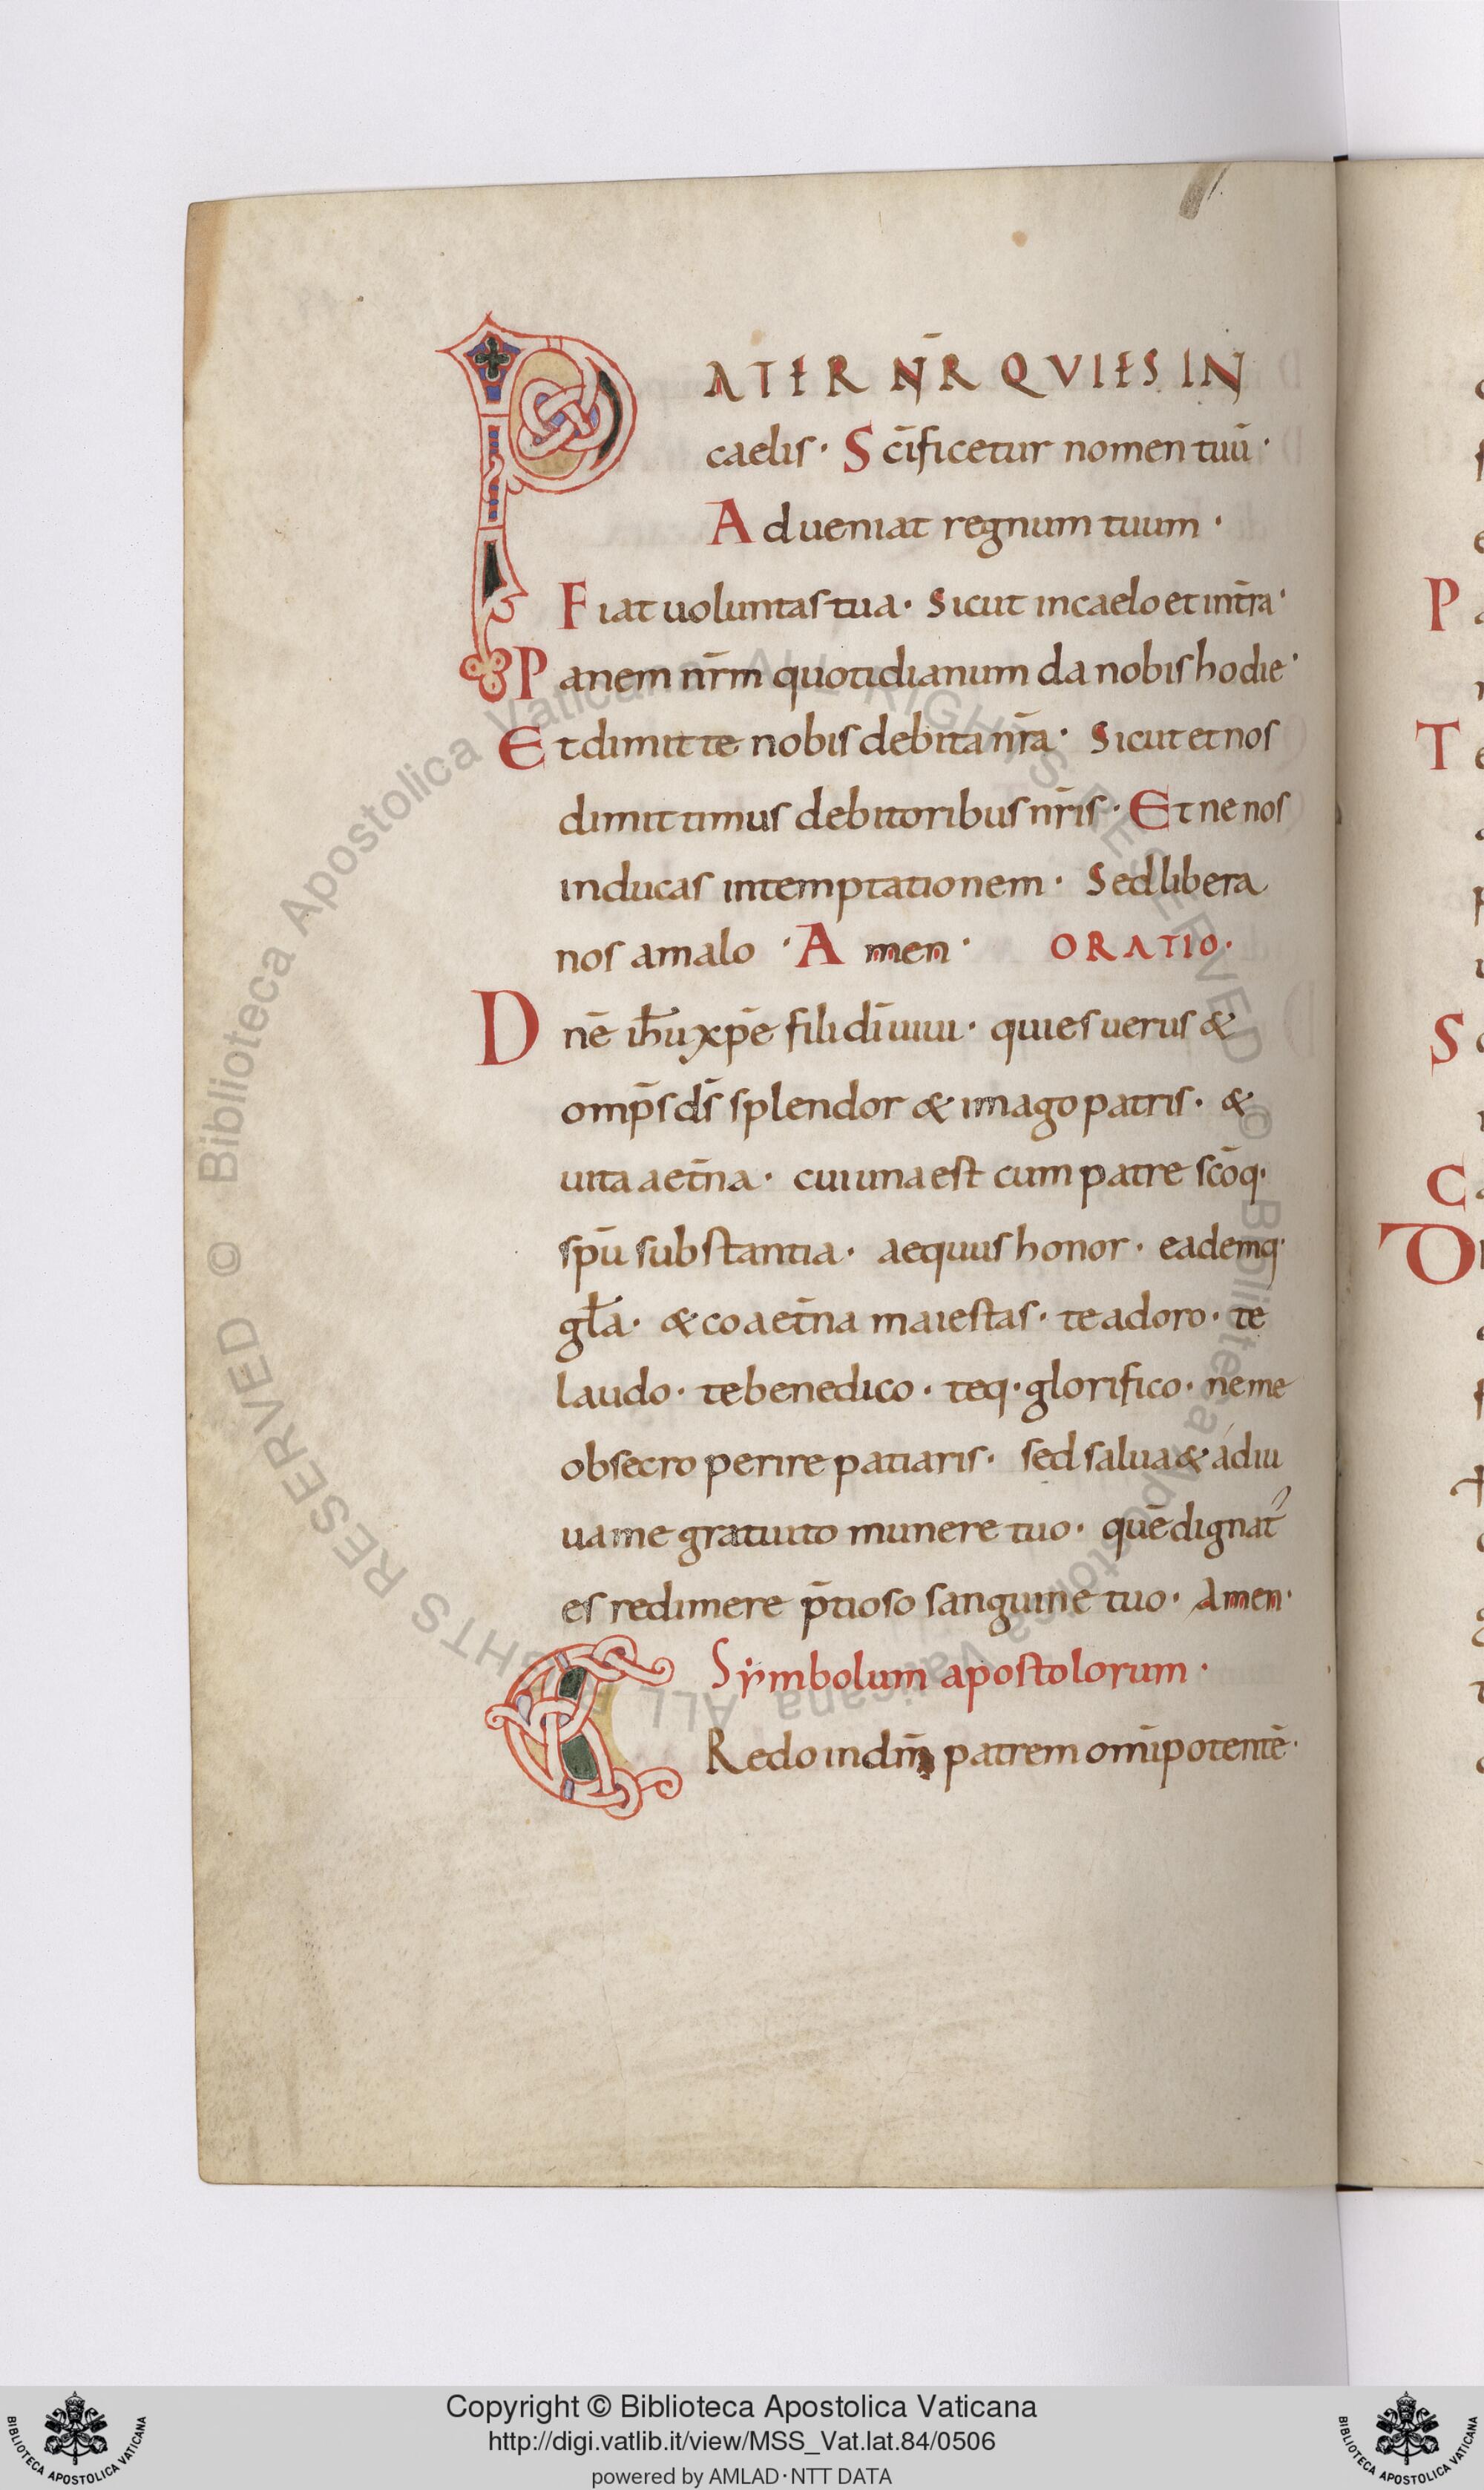 PATER NR̄ QVI ES IN
caelis· Sc̄ificetur nomen tuū·
Adueniat regnum tuum·
Fiat uoluntas tua· Sicut in caelo et in tr̄ra·
Panem nr̄m quotidianum da nobis hodie·
Et dimitte nobis debita nr̄a· Sicut et nos
dimittimus debitoribus nr̄is· Et ne nos
inducas in temptationem· Sed libera
nos a malo· Amen· ORATIO·
Dn̄e ih̄u xp̄e fili dī uiui· qui es uerus &
omp̄s ds̄ splendor & imago patris· &
uita aet̄na· cui una est cum patre sc̄oq·
sp̄u substantia· aequus honor· eademq·
gl̄a· & coaet̄na maiestas· te adoro· te
laudo· te benedico· teq· glorifico· ne me
obsecro perire patiaris· sed salua & adiu
ua me gratuito munere tuo· quē dignat᷒
es redimere p̄tioso sanguine tuo· Amen·
Symbolum apostolorum·
CRedo in dm̄ patrem omīpotentē·
P
T
S
C
D
Copyright © Biblioteca Apostolica Vaticana
http://digi.vatlib.it/view/MSS_Vat.lat.84/0506
powered by AMLAD·NTT DATA
BIBLIOTECA APOSTOLICA VATICANA
BIBLIOTECA APOSTOLICA VATICANA
© Biblioteca Apostolica Vaticana ALL RIGHTS RESERVED © Biblioteca Apostolica Vaticana ALL RIGHTS RESERVED